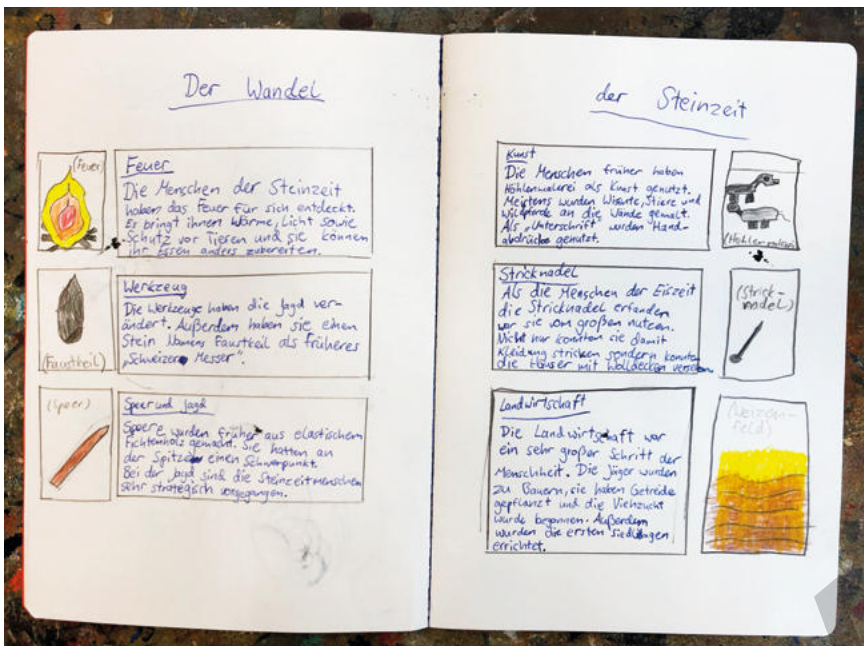 Der Wandel
(Feuer)
Feuer
Die Menschen der Steinzeit
haben das Feuer für sich entdeckt.
Es bringt ihnen Wärme, Licht sowie
Schutz vor Tieren und sie können
ihr Essen anders zubereiten.
(Faustkeil)
Werkzeug
Die Werkzeuge haben die Jagd ver-
ändert. Außerdem haben sie einen
Stein Namens Faustkeil als früheres
„Schweizer Messer".
(Speer)
Speer und Jagd
Speere wurden früher aus elastischem
Fichtenholz gemacht. Sie hatten an
der Spitze einen Schwerpunkt.
Bei der Jagd sind die Steinzeitmenschen
sehr strategisch vorgegangen.
der Steinzeit
Kunst
Die Menschen früher haben
Höhlenmalerei als Kunst genutzt.
Meistens wurden Wisente, Stiere und
Wildpferde an die Wände gemalt.
Als „Unterschrift" wurden Hand-
abdrücke genutzt.
(Höhlenmalerei)
Stricknadel
Als die Menschen der Eiszeit
die Stricknadel erfanden
war sie vom großen nutzen.
Nicht nur konnten sie damit
Kleidung stricken sondern konnten
die Häuser mit Wolldecken versehen.
(Strick-
nadel)
Landwirtschaft
Die Landwirtschaft war
ein sehr großer Schritt der
Menschheit. Die Jäger wurden
zu Bauern, sie haben Getreide
gepflanzt und die Viehzucht
wurde begonnen. Außerdem
wurden die ersten siedlungen
errichtet.
(Weizen-
feld)